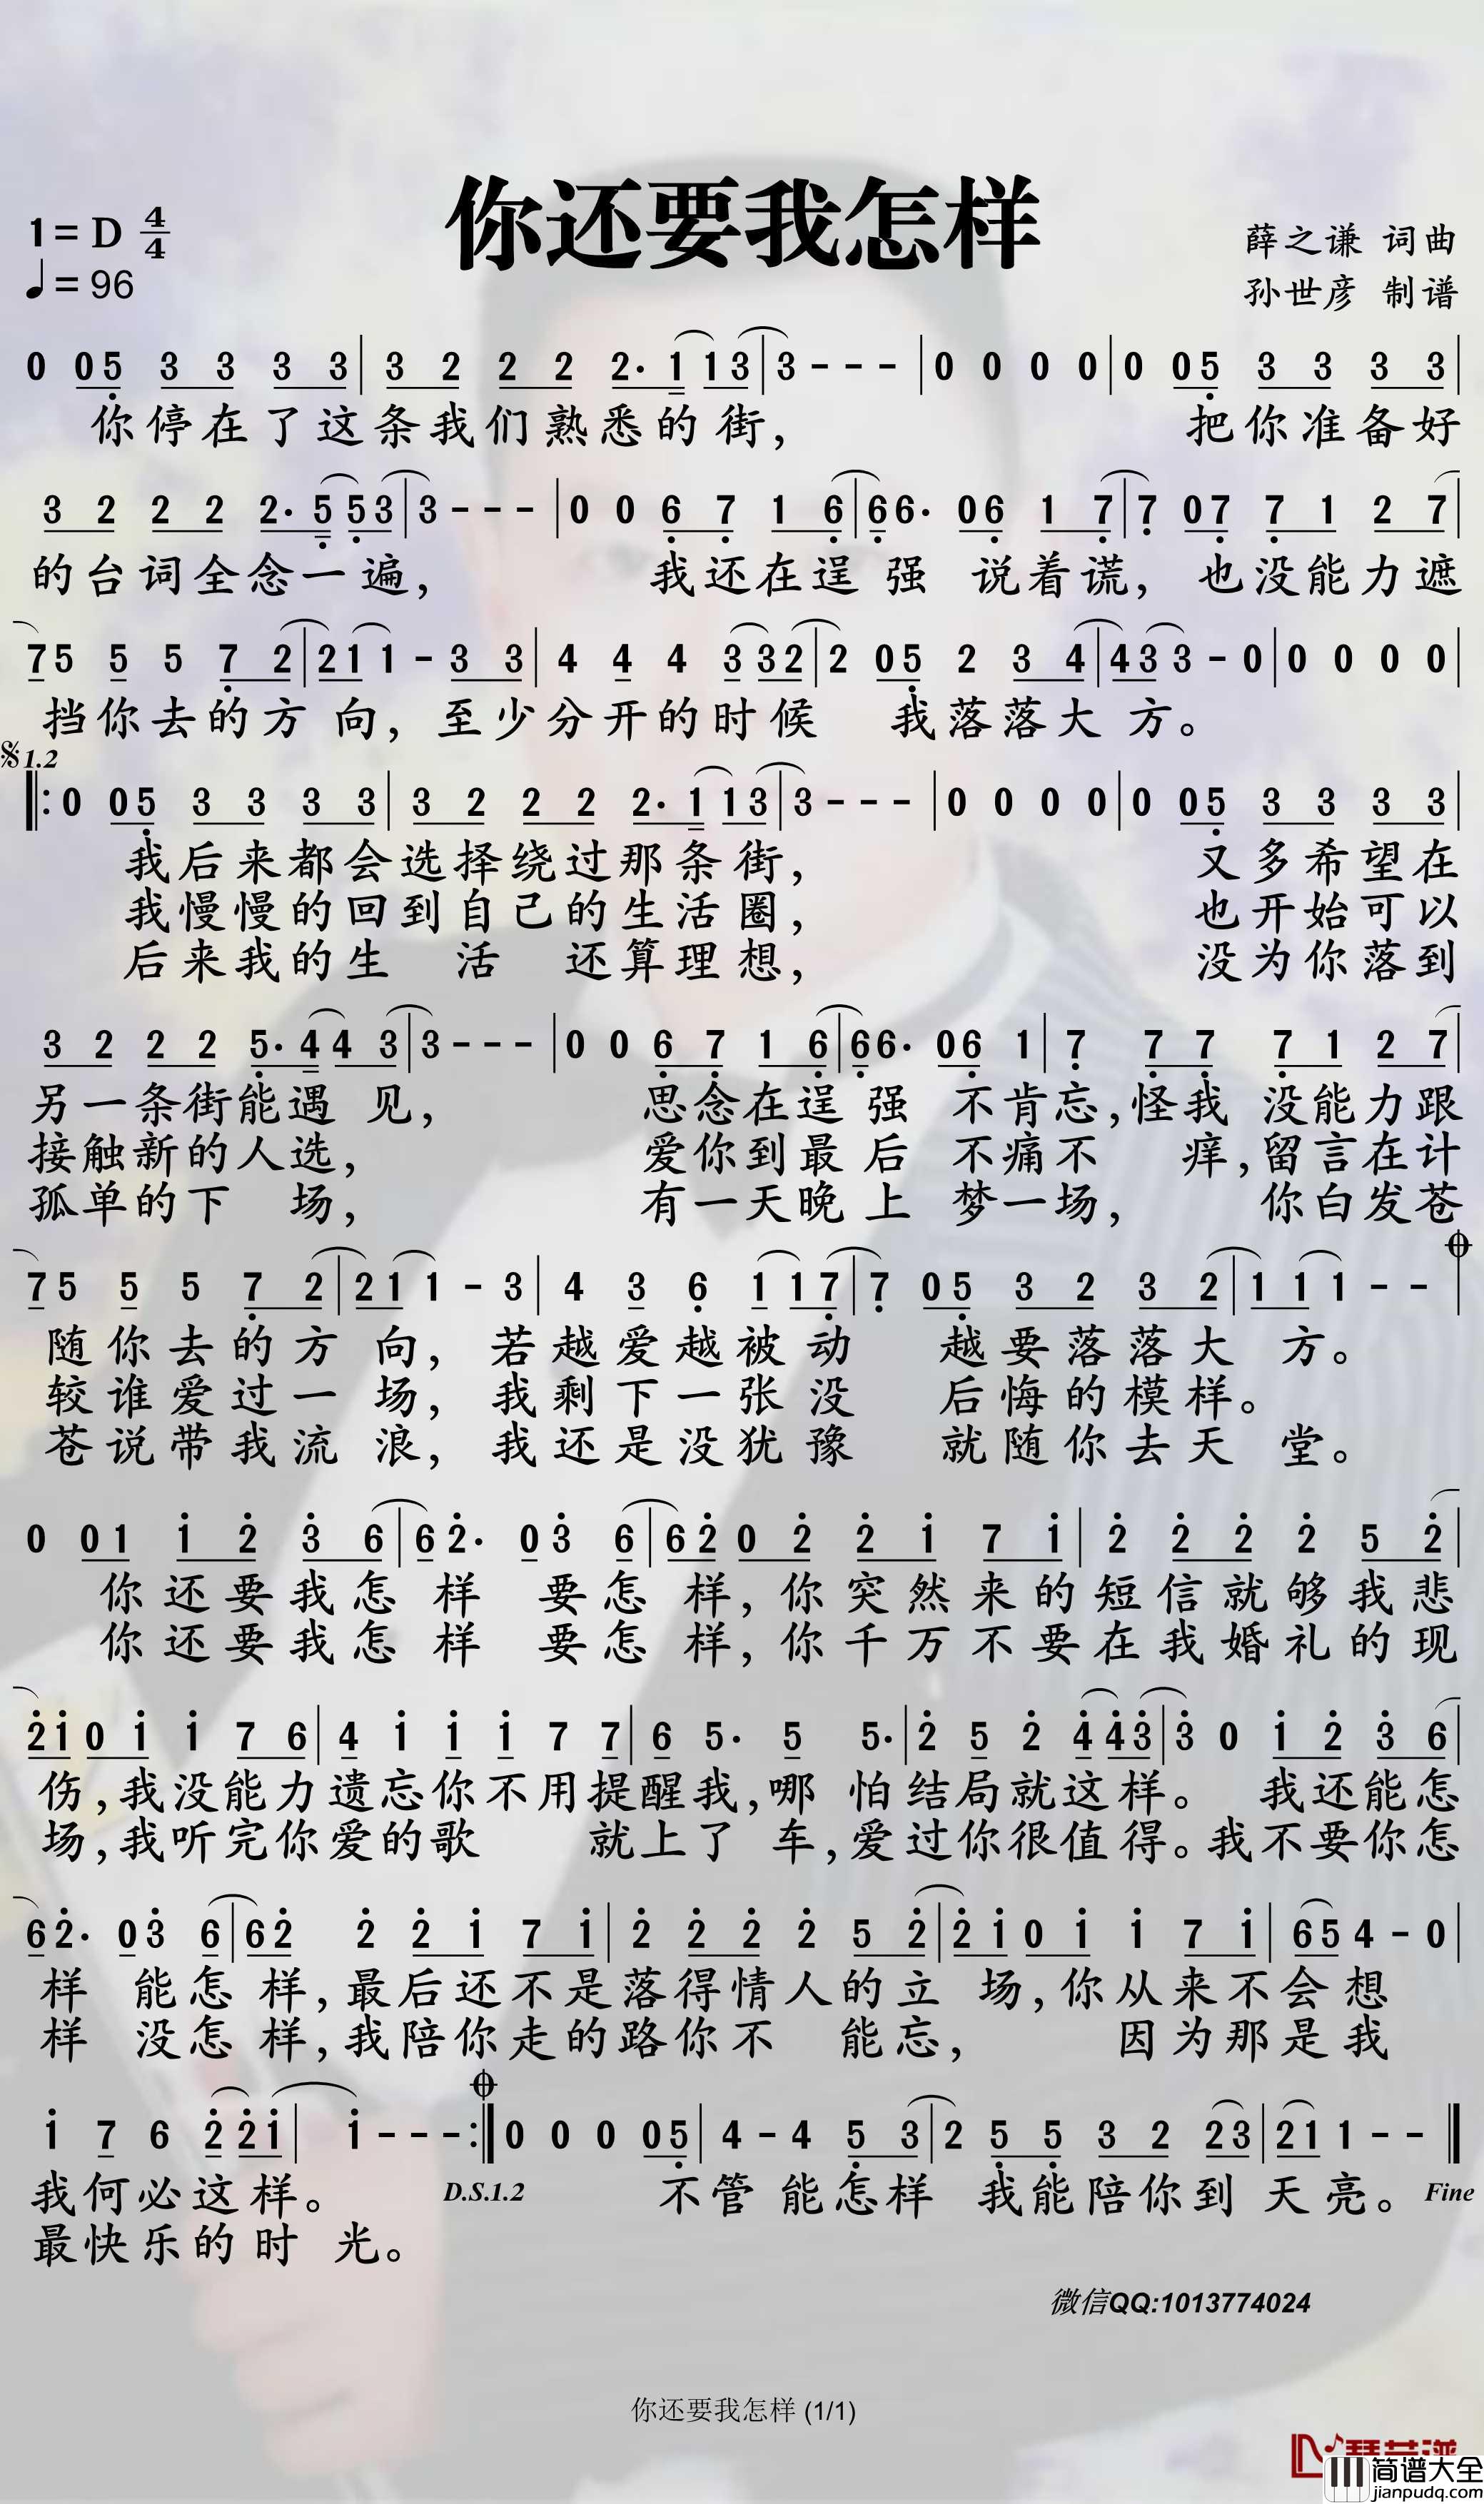 你还要我怎样
1= D 4/4
♩= 96
薛之谦 词曲
孙世彦 制谱
0 05 33 33 | 32 22 2· 1 13 | 3 - - - | 0 0 0 0 | 0 05 33 33 |
你停在了这条我们熟悉的街, 把你准备好
32 22 2· 5 53 | 3 - - - | 0 0 67 16 | 66· 06 17 | 7 07 71 27 |
的台词全念一遍, 我还在逞强 说着谎, 也没能力遮
75 5 5 72 | 21 1 - 33 | 4 4 4 3 32 | 2 05 2 34 | 43 3 - 0 | 0 0 0 0 |
挡你去的方向, 至少分开的时候 我落落大方。
𝄋1.2
‖: 0 05 33 33 | 32 22 2· 1 13 | 3 - - - | 0 0 0 0 | 0 05 33 33 |
我后来都会选择绕过那条街, 又多希望在
我慢慢的回到自己的生活圈, 也开始可以
后来我的生 活 还算理想, 没为你落到
32 22 5· 4 43 | 3 - - - | 0 0 67 16 | 66· 06 1 | 7 77 71 27 |
另一条街能遇见, 思念在逞强 不肯忘,怪我 没能力跟
接触新的人选, 爱你到最后 不痛不 痒,留言在计
孤单的下 场, 有一天晚上 梦一场, 你白发苍
𝄌
75 5 5 72 | 21 1 - 3 | 4 3 6 1 17 | 7 05 32 32 | 11 1 - - |
随你去的方 向, 若越爱越被动 越要落落大 方。
较谁爱过一 场, 我剩下一张没 后悔的模样。
苍说带我流 浪, 我还是没犹豫 就随你去天 堂。
0 01 12 36 | 62· 03 6 | 62 02 21 71 | 2 22 2 52 |
你还要我怎样 要怎样, 你突然来的短信就够我悲
你还要我怎样 要怎样, 你千万不要在我婚礼的现
21 01 1 76 | 4 1 1 1 7 7 | 6 5· 5 5· | 2 5 2 4 43 | 3 0 12 36 |
伤,我没能力遗忘你不用提醒我,哪 怕结局就这样。 我还能怎
场,我听完你爱的歌 就上了 车,爱过你很值得。我不要你怎
62· 03 6 | 62 2 21 71 | 2 22 2 52 | 21 01 1 71 | 65 4 - 0 |
样 能怎样,最后还不是落得情人的立 场,你从来不会想
样 没怎样,我陪你走的路你不 能忘, 因为那是我
𝄌
1 7 6 2 21 | 1 - - - :‖ 0 0 0 05 | 4 - 4 53 | 2 55 32 23 | 21 1 - - ‖
我何必这样。 D.S.1.2 不管 能怎样 我能陪你到 天亮。 Fine
最快乐的时 光。
微信QQ:1013774024
你还要我怎样 (1/1)
简谱大全
jianpudq.com